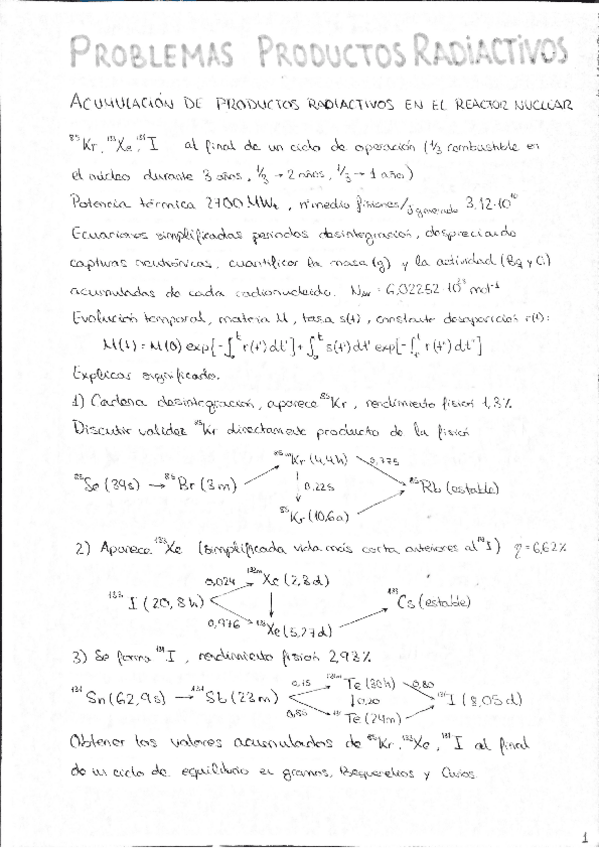 PROBLEMAS PRODUCTOS RADIACTIVOS
ACUMULACIÓN DE PRODUCTOS RADIACTIVOS EN EL REACTOR NUCLEAR
⁸⁵Kr, ¹³³Xe, ¹³¹I al final de un ciclo de operación (1/3 combustible en
el núcleo durante 3 años, 1/3 → 2 años, 1/3 → 1 año)
Potencia térmica 2700 MWt, nº medio fisiones/J generado 3,12·10¹⁰
Ecuaciones simplificadas periodos desintegración, despreciando
capturas neutrónicas, cuantificar la masa (g) y la actividad (Bq y Ci)
acumuladas de cada radionucleido. Nav = 6,02252·10²³ mol⁻¹
Evolución temporal, materia M, tasa s(t), constante desaparición r(t):
M(t) = M(0) exp[-∫₀ᵗ r(t')dt'] + ∫₀ᵗ s(t')dt' exp[-∫ₜ'ᵗ r(t')dt']
Explicar significado.
1) Cadena desintegración, aparece ⁸⁵Kr, rendimiento fisión 1,3%
Discutir validez ⁸⁵Kr directamente producto de la fisión
⁸⁵ᵐKr (4,4h) 0,775
⁸⁵Se (39s) → ⁸⁵Br (3m) 0,225 ⁸⁵Rb (estable)
⁸⁵Kr (10,6a)
2) Aparece ¹³³Xe (simplificada vida más corta anteriores al ¹³³I) η=6,62%
0,024 ¹³³ᵐXe (2,3d)
¹³³I (20,8h) ¹³³Cs (estable)
0,976 ¹³³Xe (5,27d)
3) Se forma ¹³¹I, rendimiento fisión 2,93%
0,15 ¹³¹ᵐTe (30h) 0,80
¹³¹Sn (62,9s) → ¹³¹Sb (23m) 0,20 ¹³¹I (8,05d)
0,85 ¹³¹Te (24m)
Obtener los valores acumulados de ⁸⁵Kr, ¹³³Xe, ¹³¹I al final
de un ciclo de equilibrio en gramos, Bequerelios y Curios.
1